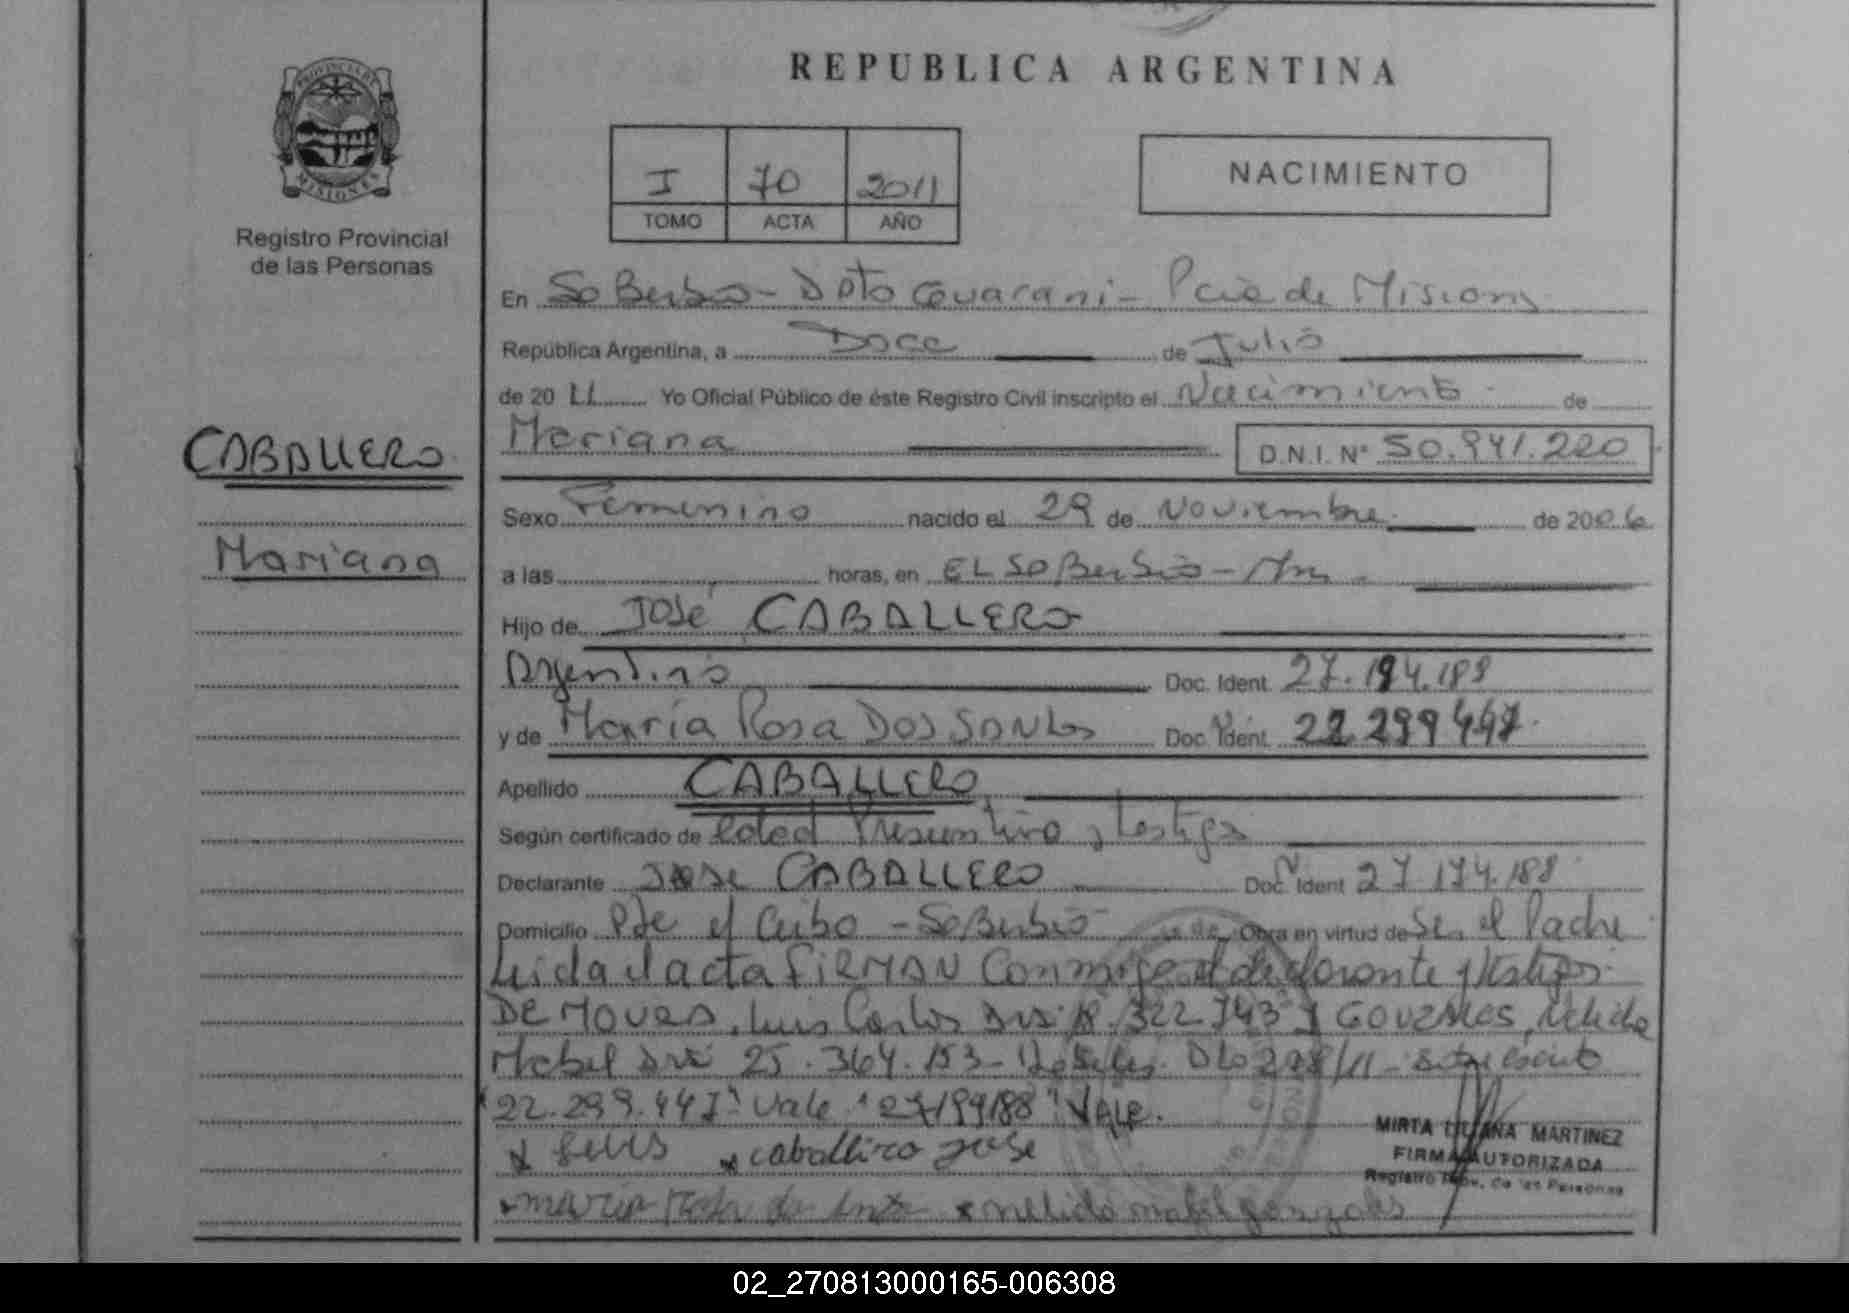 PROVINCIA DE
MISIONES
Registro Provincial
de las Personas
CABALLERO
Mariana
REPUBLICA ARGENTINA
I 70 2011
TOMO ACTA AÑO
NACIMIENTO
En So Berbio - Dpto Guarani - Pcia de Misiones
República Argentina, a Doce de Julio
de 20 11 Yo Oficial Público de éste Registro Civil inscripto el Nacimiento de
Mariana D.N.I. Nº 50.941.220
Sexo Femenino nacido el 29 de Noviembre de 2006
a las horas, en EL SoBerbio - Mnes
Hijo de José CABALLERO
Argentino Doc. Ident. 27.194.188
y de María Rosa Dos Santos Doc. Ident. 22.299.447
Apellido CABALLERO
Según certificado de Edad Presuntiva y testigos
Declarante José CABALLERO Doc. Ident 27.174.188
Domicilio Pje el Ceibo - SoBerbio Obra en virtud de Ser el Padre
Leida el acta FIRMAN Conmigo el declarante y testigos
DE MOURA, Luis Carlos DNI 18.322.743 y GONZALES, Nelida
Mabel DNI 25.364.153 - Dto 298/11 - Sobre escrito
"22.299.447" Vale "27194188" VALE.
x luis x caballero jose
x maria Rosa do santo x nelida mabel gonzales
MIRTA LILIANA MARTINEZ
FIRMA AUTORIZADA
Registro Prov. de las Personas
02_270813000165-006308